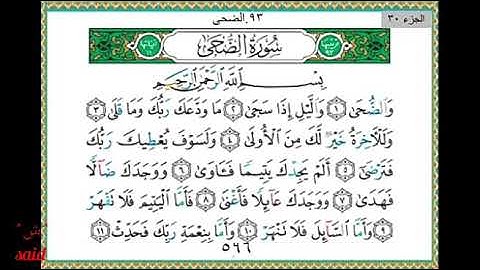 الجزء ٣٠
٩٣.الضحى
سُورَةُ الضُّحَىٰ
بِسْمِ اللَّهِ الرَّحْمَٰنِ الرَّحِيمِ
وَالضُّحَىٰ ١ وَاللَّيْلِ إِذَا سَجَىٰ ٢ مَا وَدَّعَكَ رَبُّكَ وَمَا قَلَىٰ ٣
وَلَلْآخِرَةُ خَيْرٌ لَّكَ مِنَ الْأُولَىٰ ٤ وَلَسَوْفَ يُعْطِيكَ رَبُّكَ
فَتَرْضَىٰ ٥ أَلَمْ يَجِدْكَ يَتِيمًا فَآوَىٰ ٦ وَوَجَدَكَ ضَالًّا
فَهَدَىٰ ٧ وَوَجَدَكَ عَائِلًا فَأَغْنَىٰ ٨ فَأَمَّا الْيَتِيمَ فَلَا تَقْهَرْ
٩ وَأَمَّا السَّائِلَ فَلَا تَنْهَرْ ١٠ وَأَمَّا بِنِعْمَةِ رَبِّكَ فَحَدِّثْ ١١
٥٩٦
said